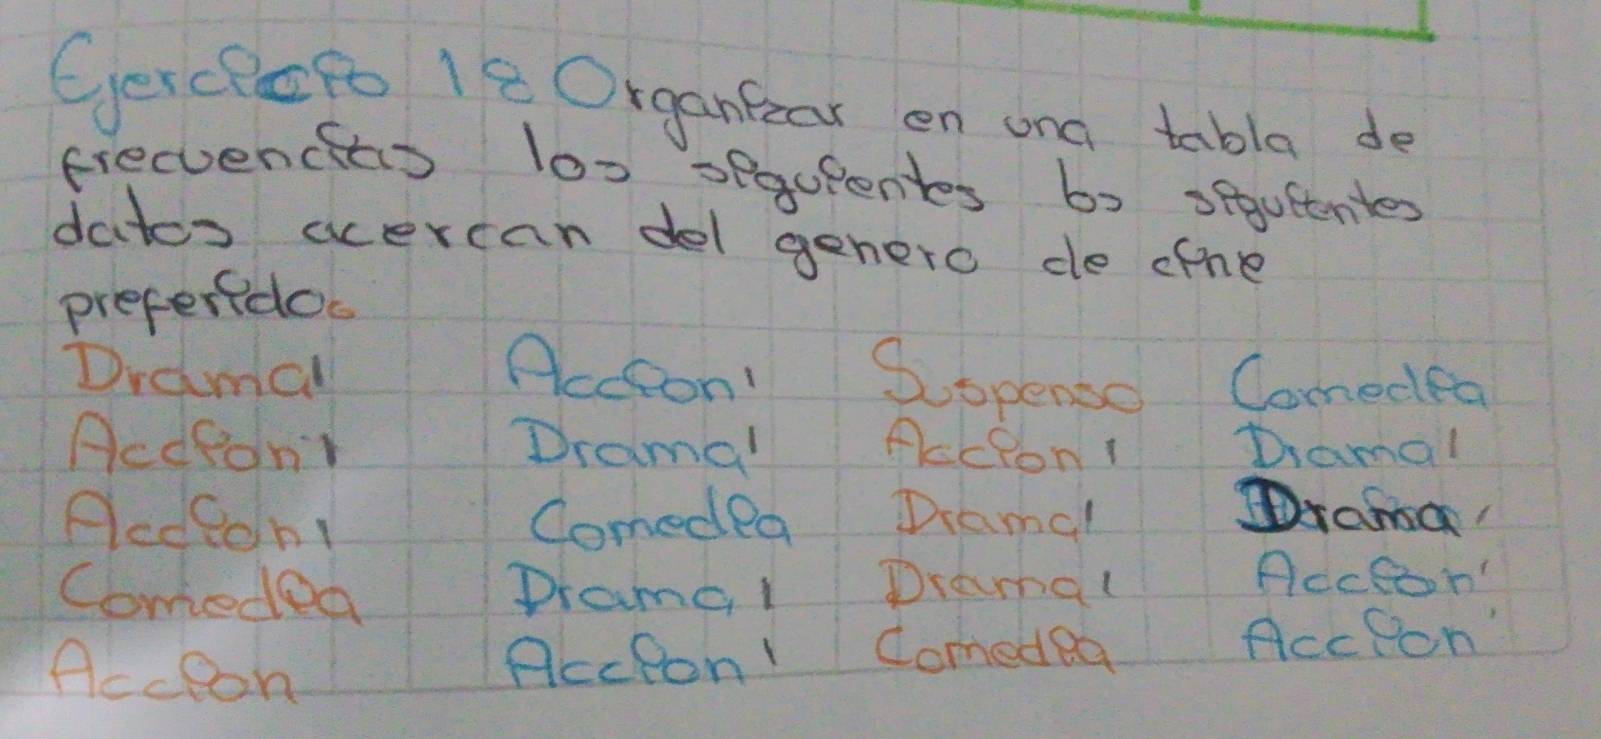 Ejercicio 18 Organizar en una tabla de
frecuencias los siguientes los siguientes
datos acercan del genero de cine
preferido.
Drama Accion Suspenso Comedia
Accion Drama Accion Drama
Accion Comedia Drama Drama
Comedia Drama Drama Accion
Accion Accion Comedia Accion